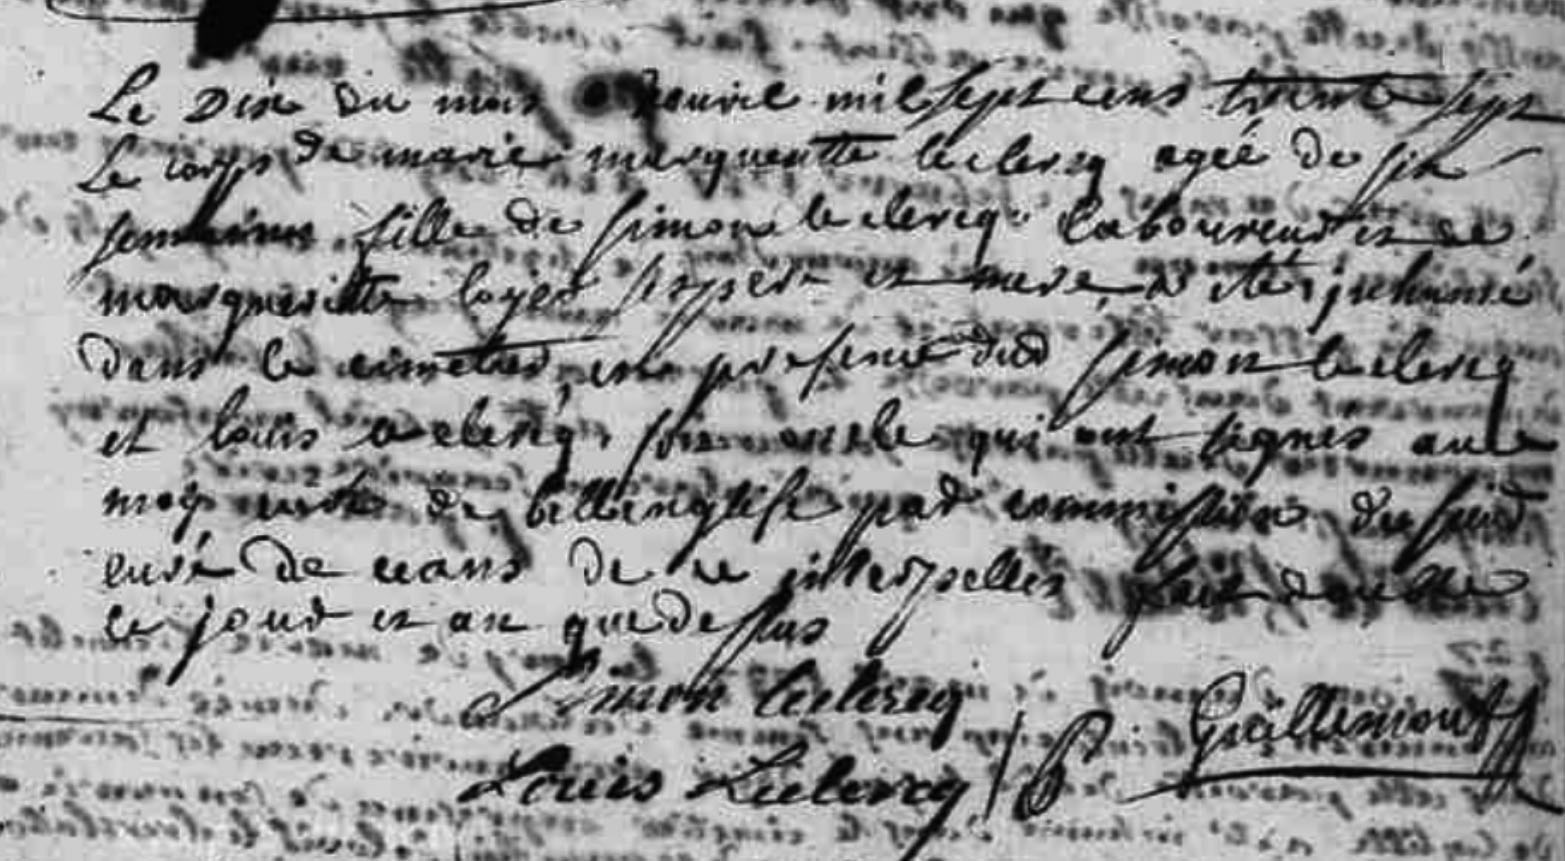 Le Dix du mois d'avril mil sept cens trente sept
Le corps de marie margueritte leclercq agée de six
semaines fille de simon le clercq laboureur et de
margueritte loyer ses pere et mere, a été inhumé
dans le cimetier en presence dud simon le clercq
et louis le clercq son oncle qui ont signés avec
moy curé de bellenglise par commission du sieur
curé de ceans de ce interpellés fait double
ce jour et an que dessus
Simon leclercq
Louis Leclercq
Guillemont